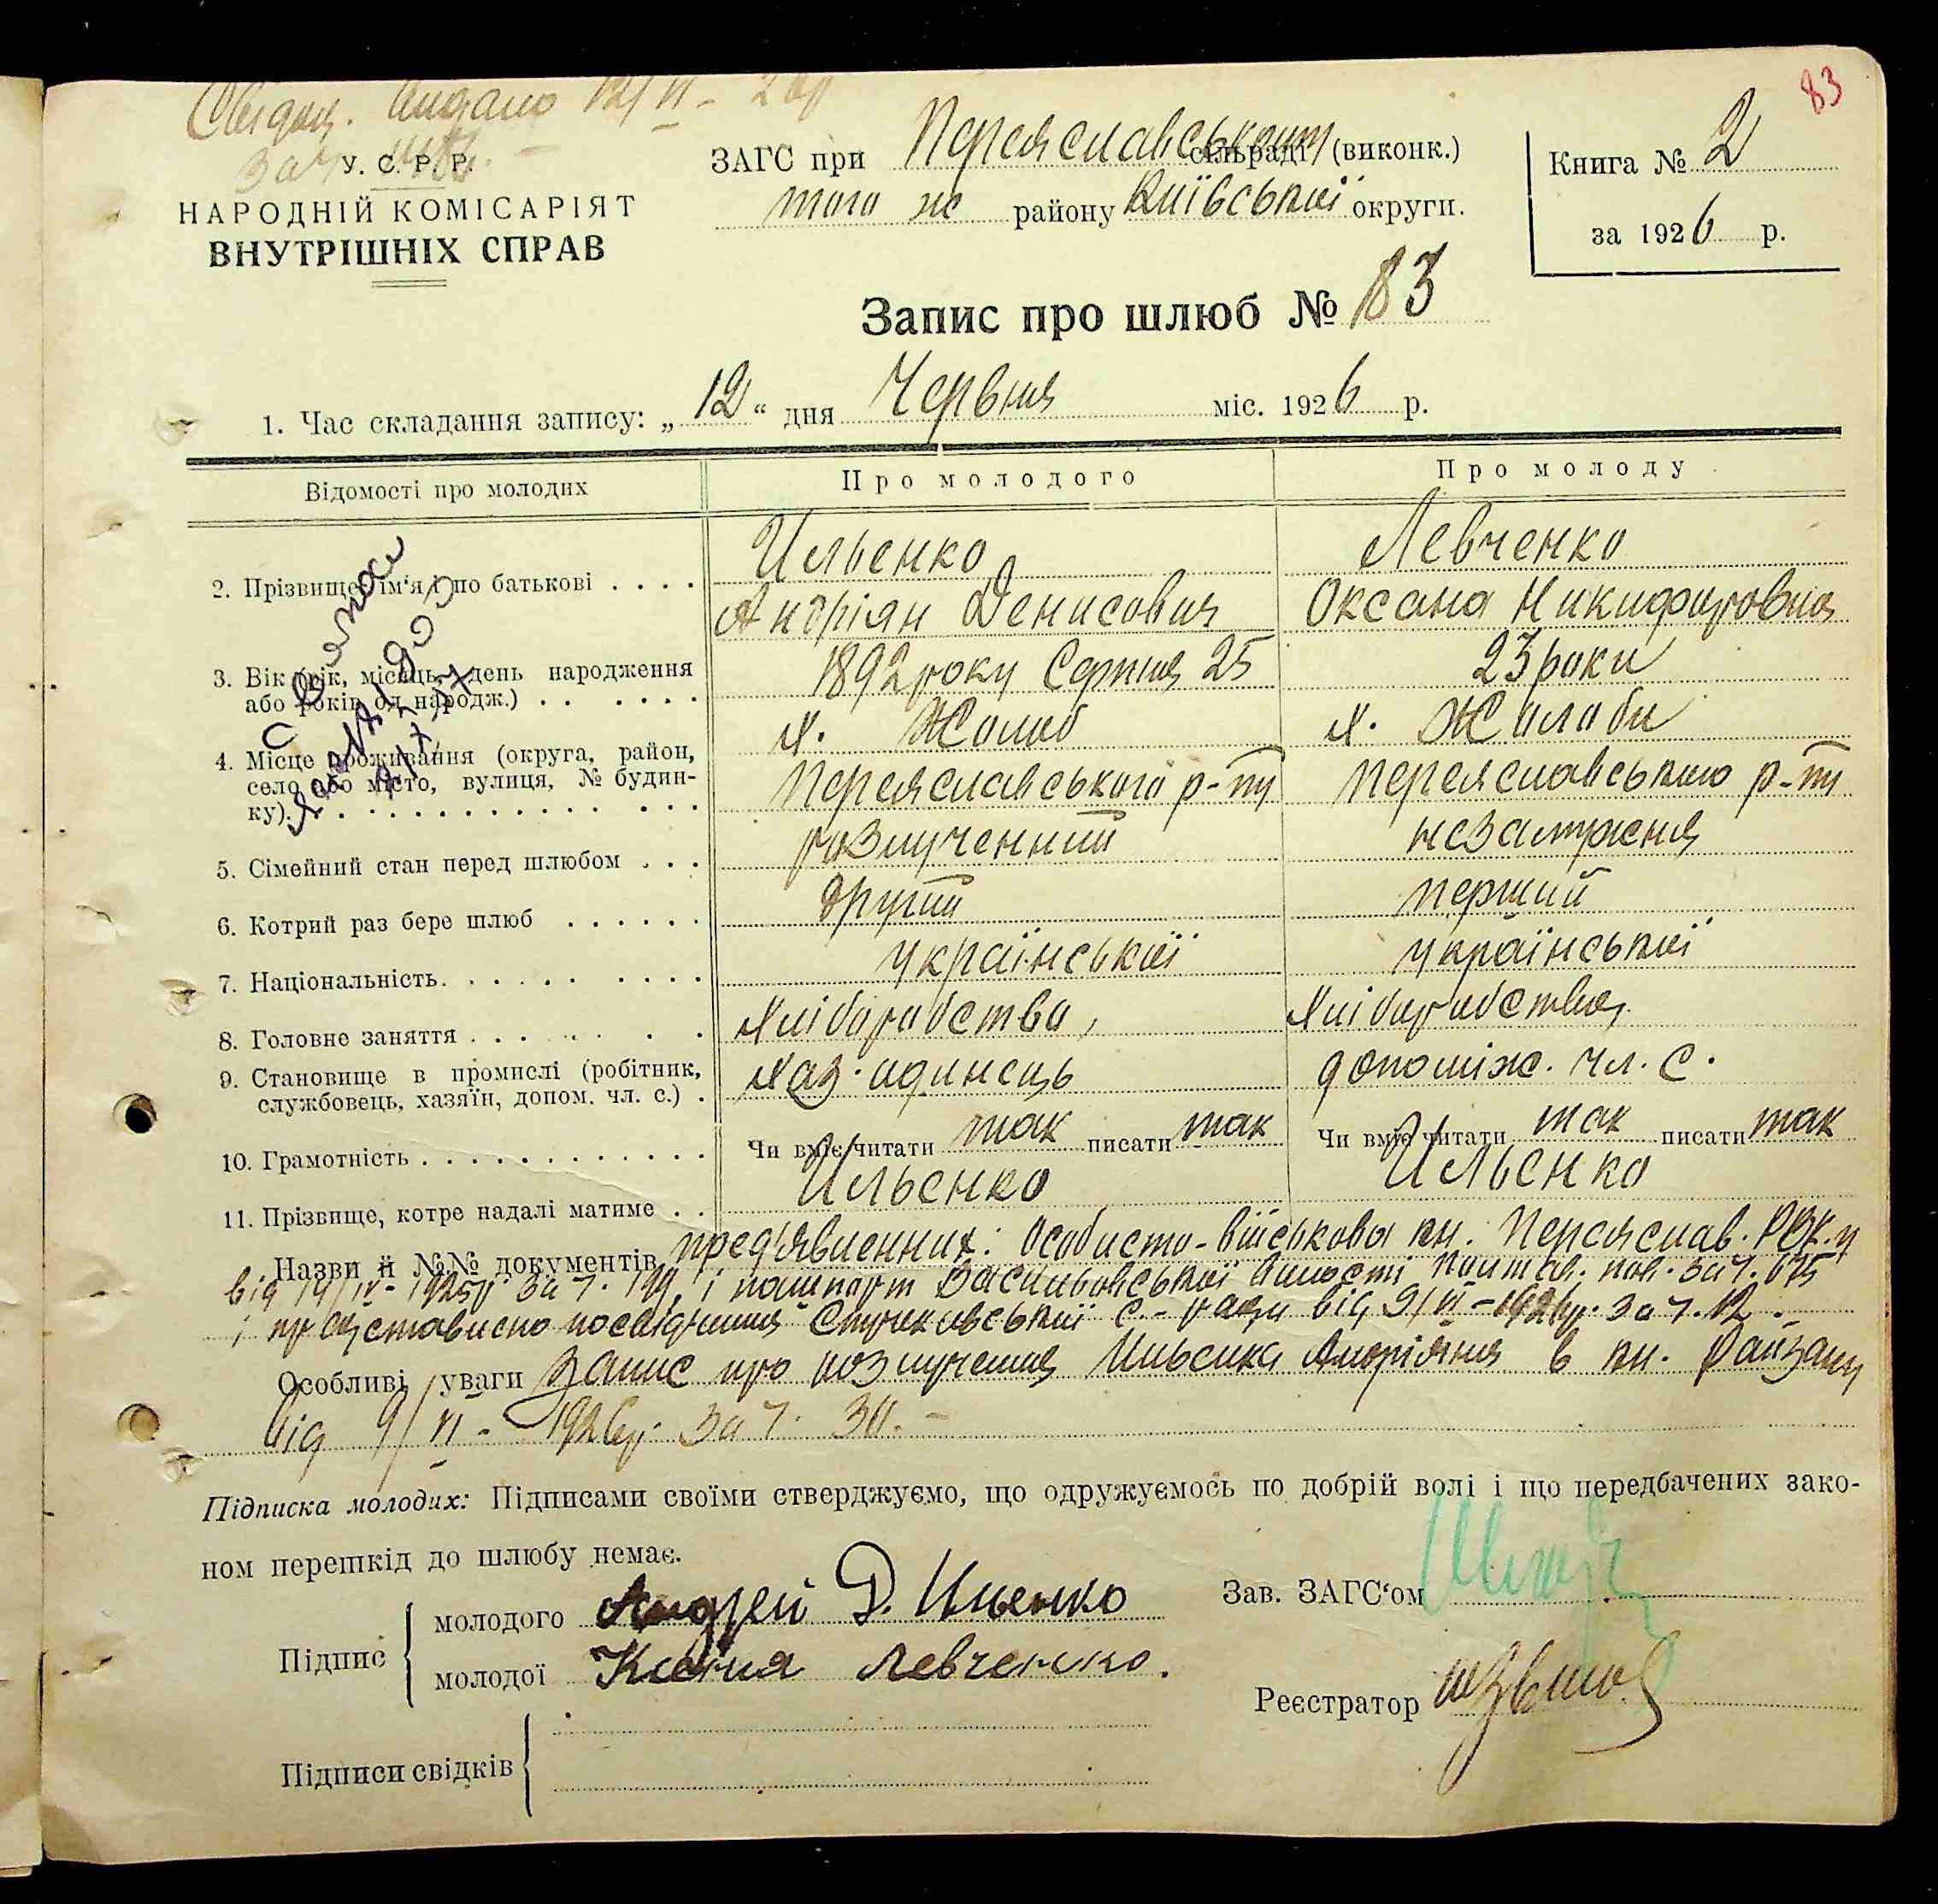 83
Свідоц. видано 12/VI-26р
за ч.
У. С. Р. Р.
НАРОДНІЙ КОМІСАРІЯТ
ВНУТРІШНІХ СПРАВ
ЗАГС при Переяславському сільраді (виконк.)
того ж району Київської округи.
Книга № 2
за 1926 р.
Запис про шлюб № 83
1. Час складання запису: „12“ дня Червня міс. 1926 р.
Відомості про молодих
Про молодого
Про молоду
2. Прізвище, ім'я і по батькові . . . .
Ильенко
Андріян Денисович
Левченко
Оксана Никифоровна
3. Вік (рік, місяць, день народження
або років од народж.) . . . . . .
1892 року Серпня 25
23 роки
4. Місце проживання (округа, район,
село або місто, вулиця, № будин-
ку). . . . . . . . . . . . . .
х.
Переяславського р-ну
х.
Переяславського р-ну
5. Сімейний стан перед шлюбом . . .
розлученний
незамужня
6. Котрий раз бере шлюб . . . . . .
другий
перший
7. Національність. . . . . . . . .
української
української
8. Головне заняття . . . . . . .
Хліборобство,
Хліборобство,
9. Становище в промислі (робітник,
службовець, хазяїн, допом. чл. с.) .
Хаз. одинець
допоміж. чл. с.
10. Грамотність . . . . . . . . . . . .
Чи вміє читати так писати так
Чи вміє читати так писати так
11. Прізвище, котре надалі матиме . .
Ильенко
Ильенко
Назви й №№ документів пред'явленних: Особисто-військова кн. Переяслав. РВК.у
від 19/IV-1925р за ч. 199, і пашпорт Васильовської волости пов. за ч. 675
і представлено посвідчення с.-ради від 9/VI-1926р. за ч. 12.
Особливі уваги Запис про розлучення Ильенка Андріяна в кн. Райзагсу
від 9/VI-1926р. за ч. 30.-
Підписка молодих: Підписами своїми стверджуємо, що одружуємось по добрій волі і що передбачених зако-
ном перешкід до шлюбу немає.
Підпис
молодого Андрей Д. Ильенко
молодої Левченко.
Зав. ЗАГС'ом
Реєстратор
Підписи свідків